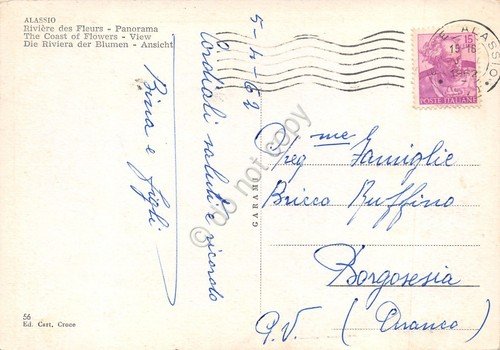 ALASSIO
Rivière des Fleurs - Panorama
The Coast of Flowers - View
Die Riviera der Blumen - Ansicht
5-4-62
Cordiali saluti e ricordo
Bina e figli
GARAMI
ALASSIO
19-18
1962
15
POSTE ITALIANE
Preg.me Famiglie
Bricco Ruffino
Borgosesia
G.V. (Aranco)
56
Ed. Cart. Croce
do not copy